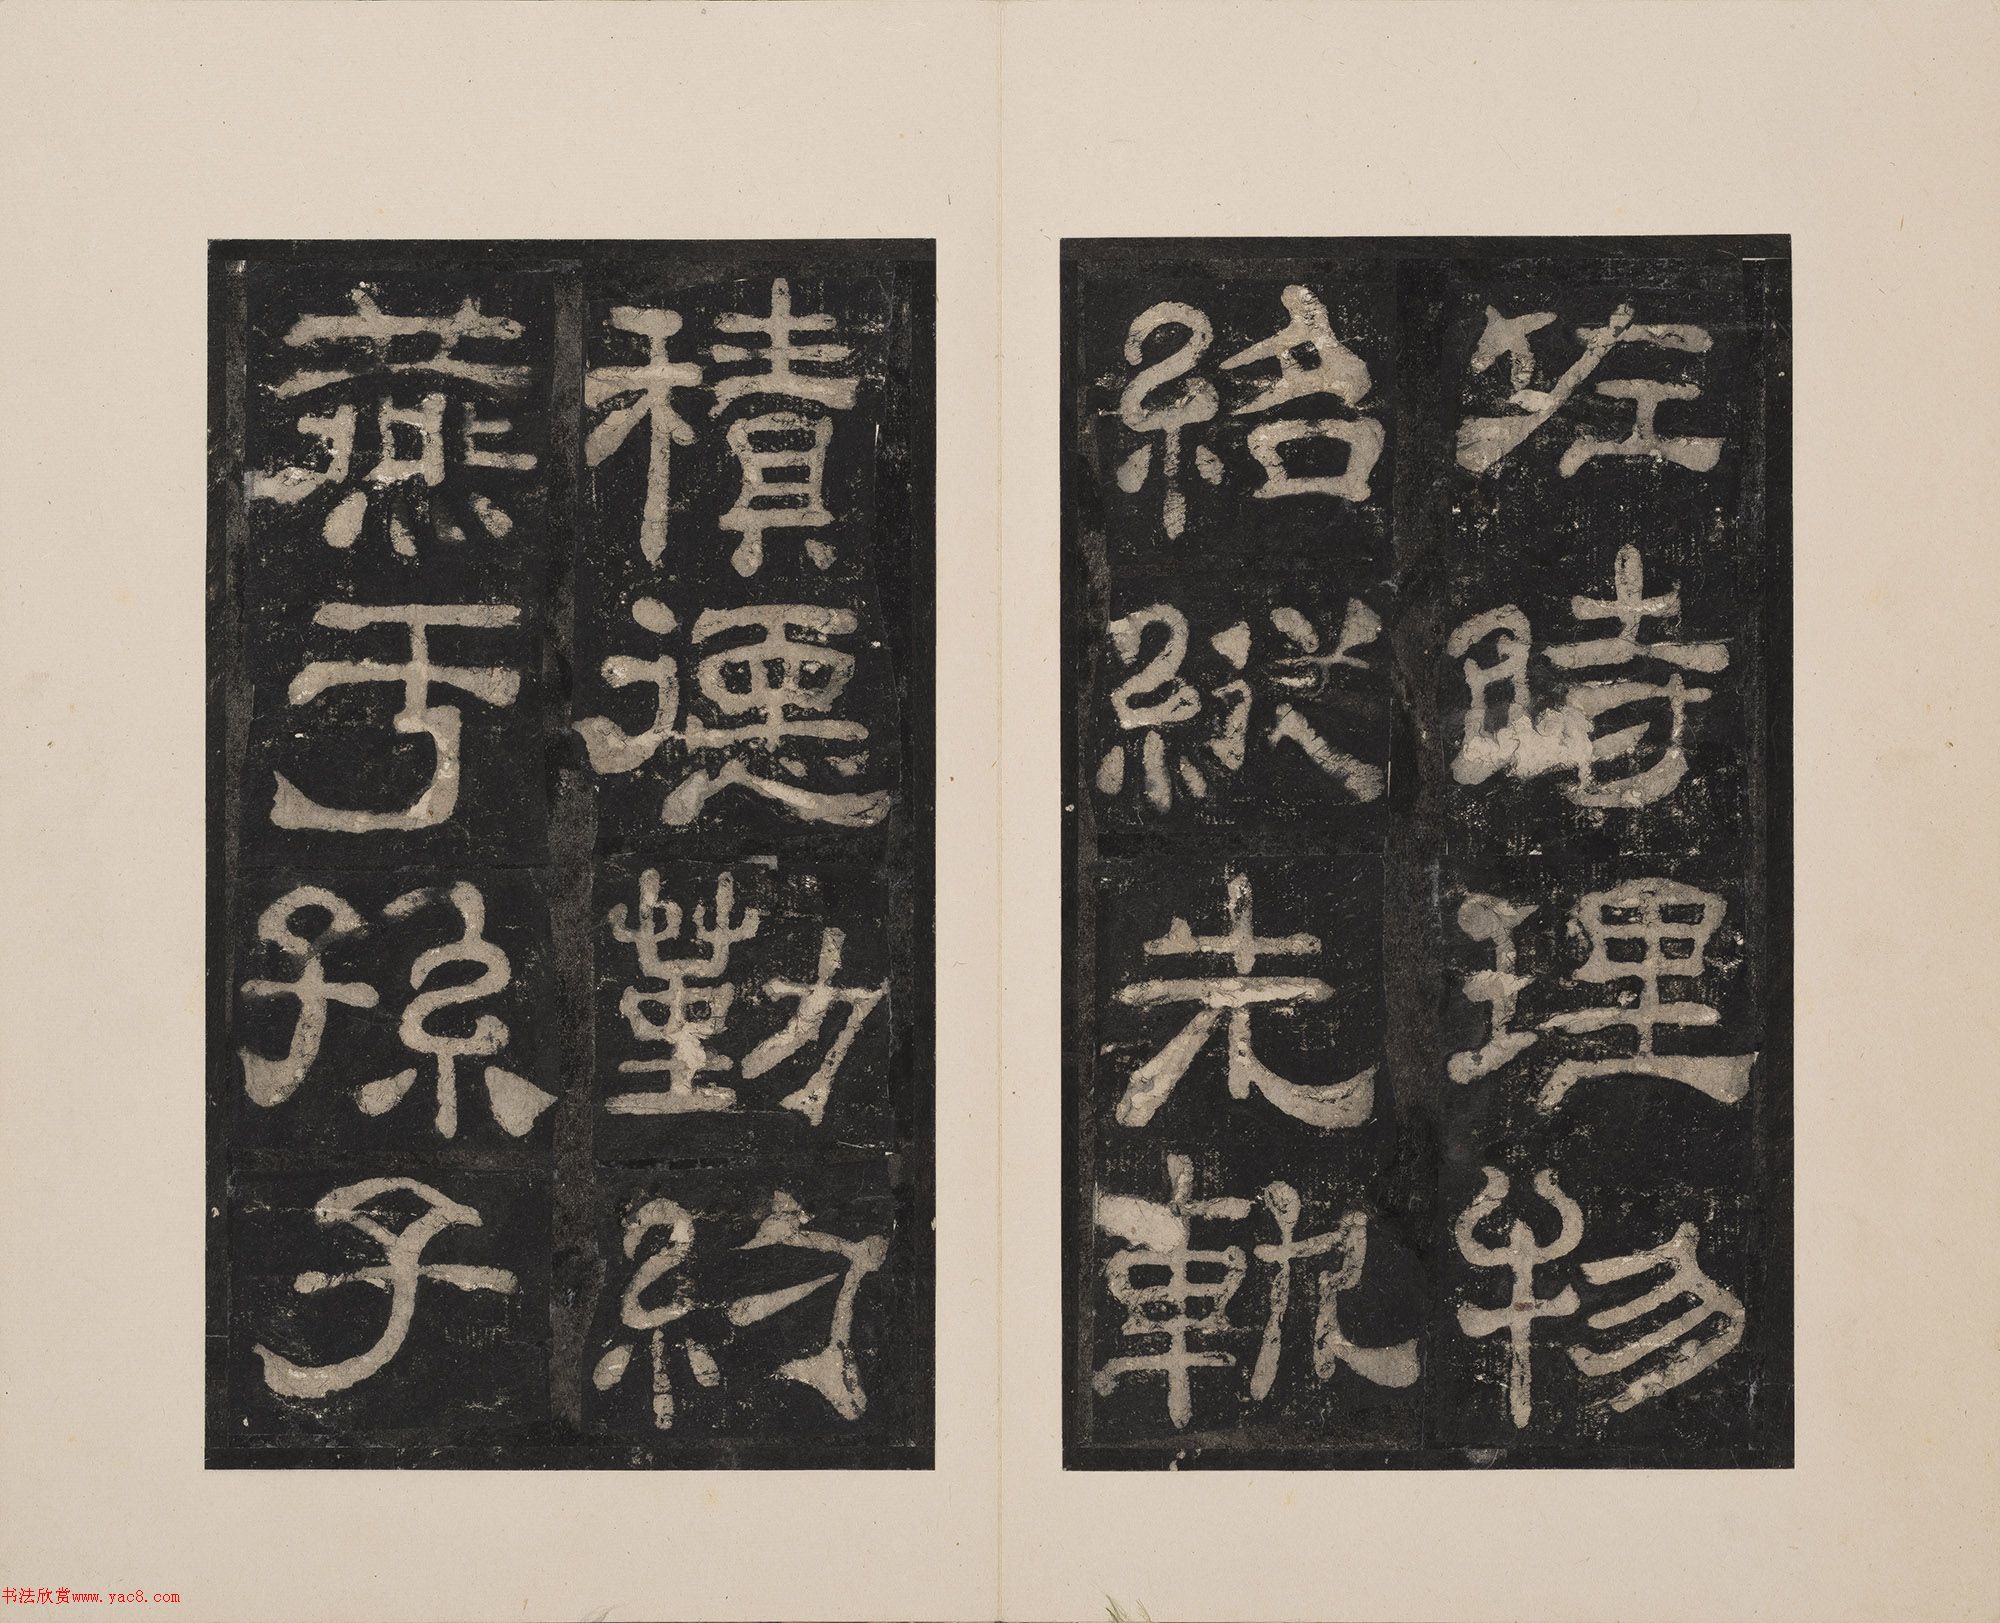 佐時理物
紹縱先軌
積德勤約
燕于孫子
书法欣赏www.yac8.com